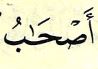 أَصۡحَـٰبُ